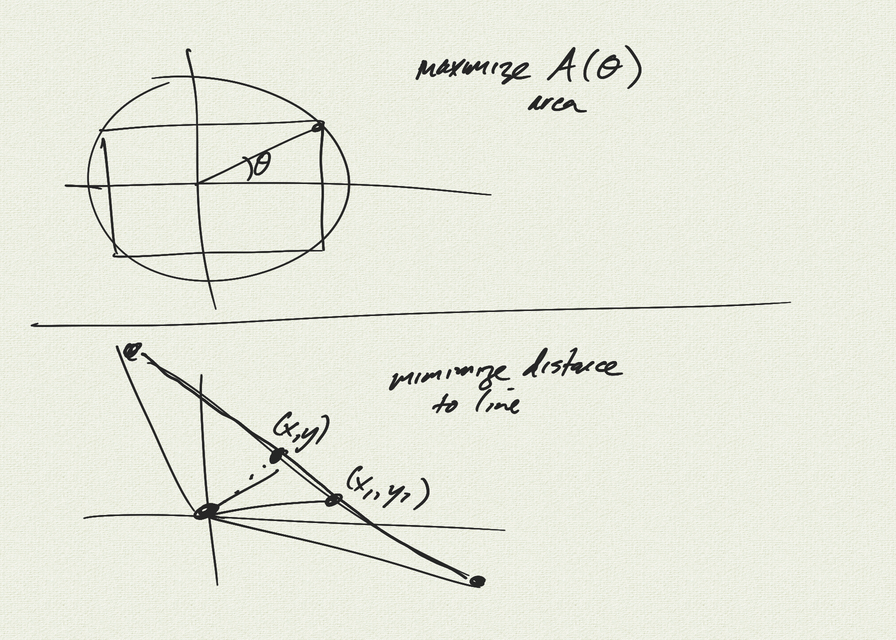 maximize A(θ)
area
θ
minimize distance
to line
(x,y)
(x₁,y₁)